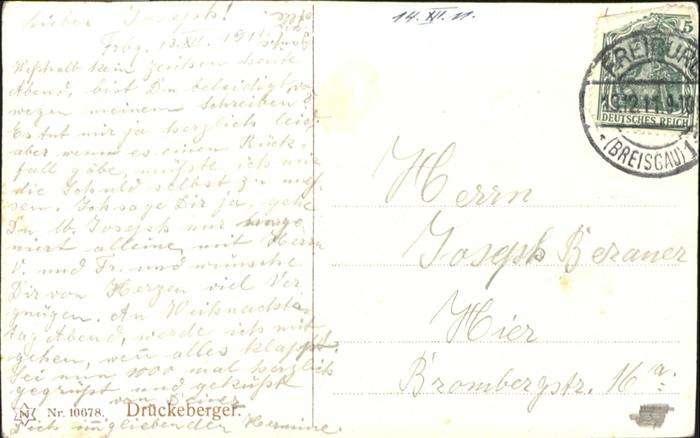 Lieber Joseph!
Frbg. 13.XII. 1911
Weshalb kein Zeichen heute
Abend, bist Du beleidigt, von
wegen meinem Schreiben
Es tut mir ja herzlich leid
aber wenn es einen Rück-
fall gäbe, müßte ich mir
die Schuld selbst zu mes-
sen. Ich sage Dir ja, gehe
Du lb. Joseph nur
alleine, mit Herrn
V. und Fr. und wünsche
Dir von Herzen viel Ver
gnügen. An Weihnachts
tag Abend, werde ich mit
gehen, wenn alles klappt.
Sei nun 1000 mal herzlich
gegrüßt und geküßt
von Deiner
Dich innigliebenden Hermine.
Nr. 10678. Drückeberger.
14. XII. 11.
5
DEUTSCHES REICH
FREIBURG
13.12.11. 9-10
(BREISGAU) 1
Herrn
Joseph Beraner
Hier
Brombergstr. 14 a.